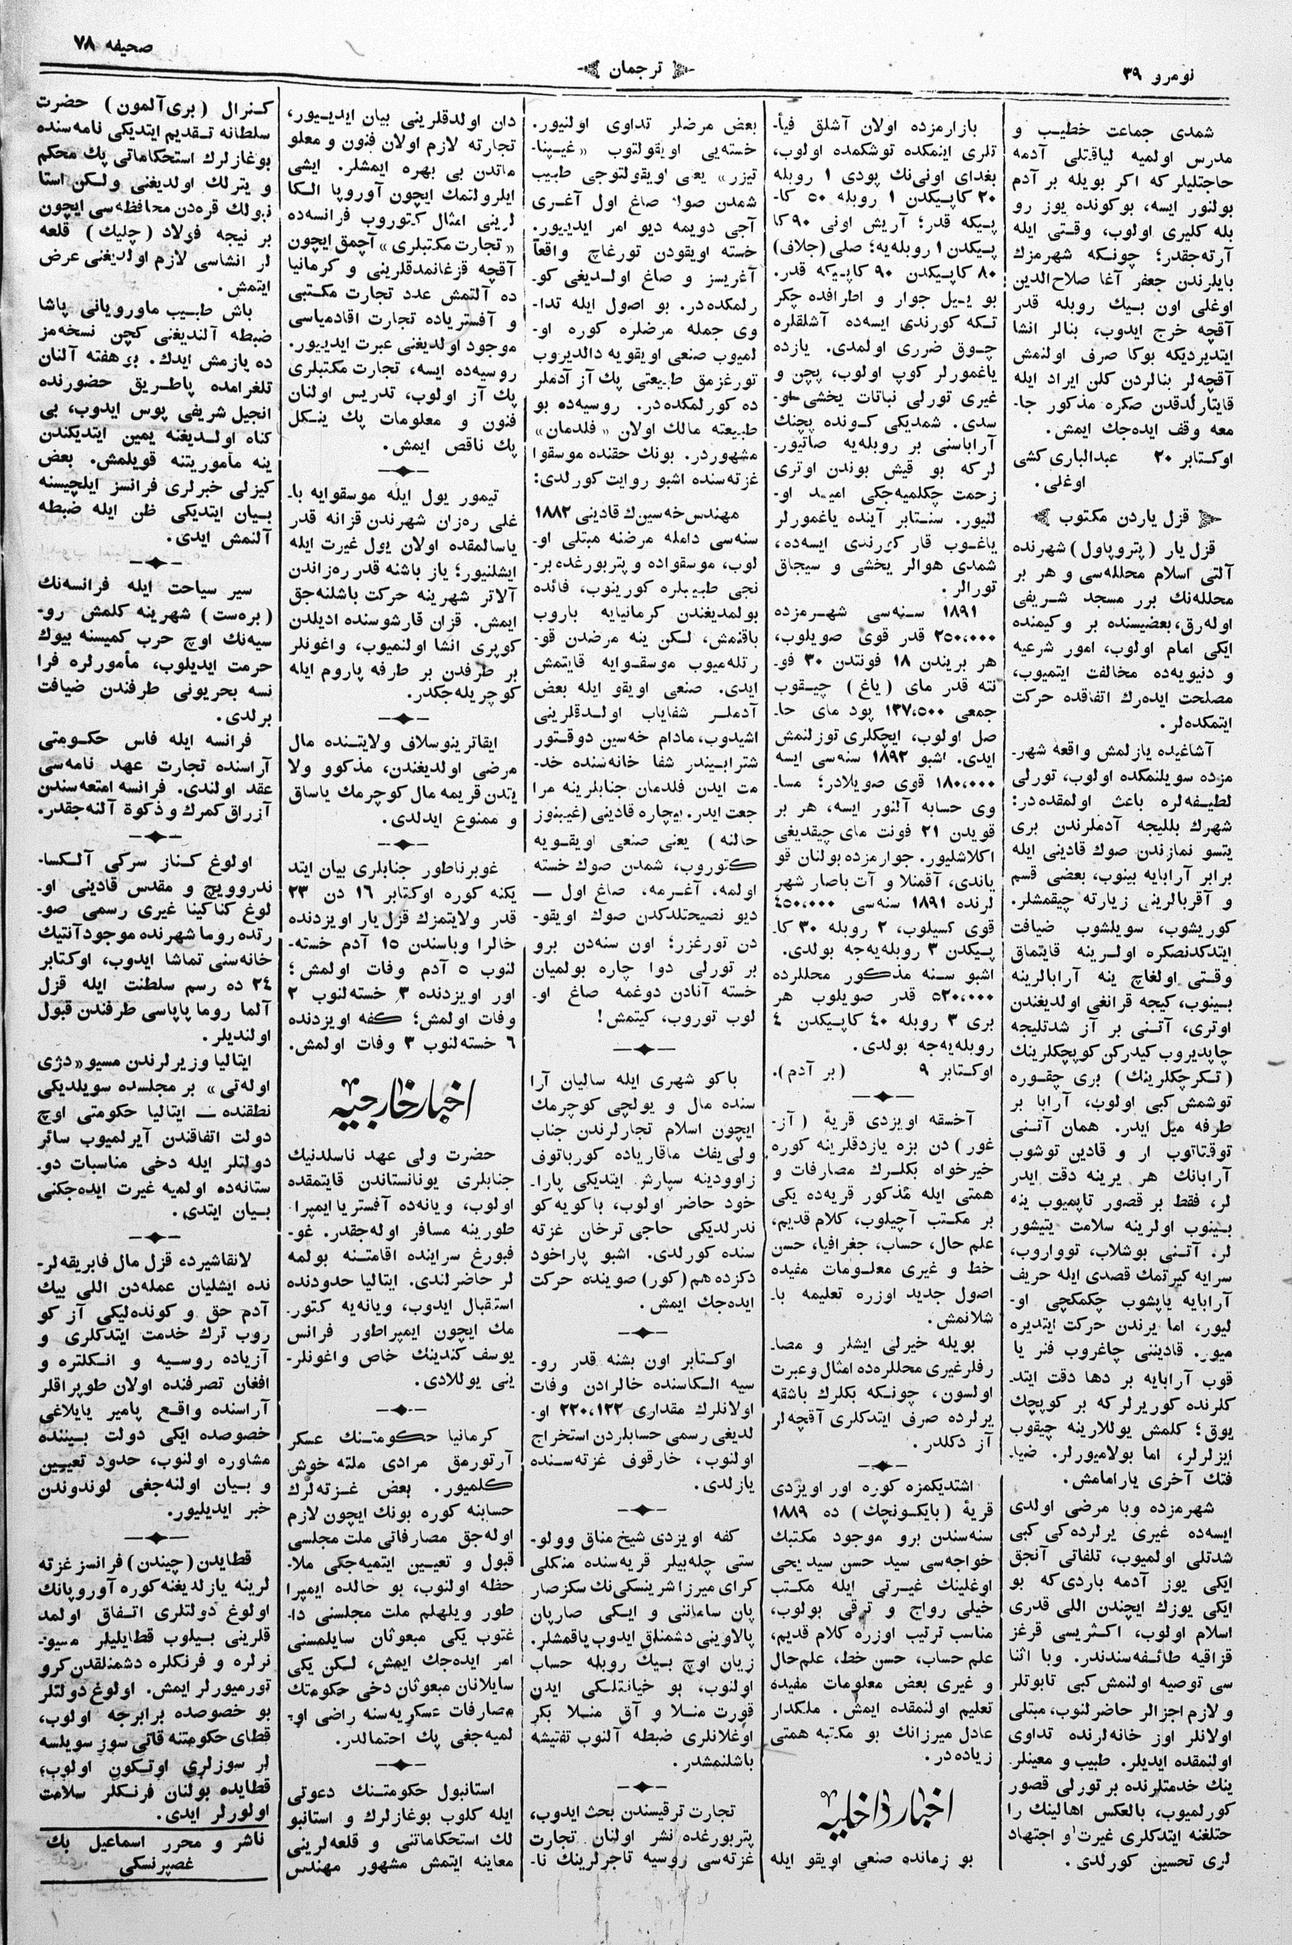 نومرو ٣٩
ترجمان
صحیفه ٧٨
شمدی جماعت خطیب و
مدرس اولمیه لیاقتلی آدمه
حاجتلیلر که اکر بویله بر آدم
بولنور ایسه، بوکونده یوز رو
بله کلیری اولوب، وقتی ایله
آرته‌جقدر؛ چونکه شهرمزك
بایلرندن جعفر آغا صلاح‌الدین
اوغلی اون بیك روبله قدر
آقچه خرج ایدوب، بنالر انشا
ایتدیردیکه بوکا صرف اولنمش
آقچه‌لر بنالردن کلن ایراد ایله
قایتارلدقدن صکره مذکور جا-
معه وقف ایده‌جك ایمش.
اوکتابر ٢٠ عبدالباری کشی
اوغلی.
قزل یاردن مکتوب
قزل یار (پتروپاول) شهرنده
آلتی اسلام محلله‌سی و هر بر
محلله‌نك برر مسجد شریفی
اوله‌رق، بعضیسنده بر و کیمنده
ایکی امام اولوب، امور شرعیه
و دنیویه‌ده مخالفت ایتمیوب،
مصلحت ایده‌رك اتفاقده حرکت
ایتمکده‌لر.
آشاغیده یازلمش واقعه شهر-
مزده سویلنمکده اولوب، تورلی
لطیفه‌لره باعث اولمقده‌در:
شهرك بللیجه آدملرندن بری
یتسو نمازندن صوك قادینی ایله
برابر آرابایه بینوب، بعضی قسم
و آقربالرینی زیارته چیقمشلر.
کوریشوب، سویلشوب ضیافت
ایتدکدنصکره اولرینه قایتماق
وقتی اولغاچ ینه آرابالرینه
بینوب، کیجه قرانغی اولدیغندن
اوتری، آتنی بر آز شدتلیجه
چاپدیروب کیدرکن کوپچکلرینك
(تکرچکلرینك) بری چقوره
توشمش کبی اولوب، آرابا بر
طرفه میل ایدر. همان آتنی
توقتاتوب ار و قادین توشوب
آرابانك هر یرینه دقت ایدر
لر، فقط بر قصور تاپمیوب ینه
بینوب اولرینه سلامت یتیشور
لر. آتنی بوشلاب، تووار‌وب،
سرایه کیرتمك قصدی ایله حریف
آرابایه یاپشوب چکمکچی او-
لیور، اما یرندن حرکت ایتدیره
میور. قادیننی چاغروب فنر یا
قوب آرابایه بر دها دقت ایتد-
کلرنده کوریرلر که بر کوپچك
یوق؛ کلمش یوللارینه چیقوب
ایزلرلر، اما بولامیورلر. ضیا-
فتك آخری یارامامش.
شهرمزده وبا مرضی اولدی
ایسه‌ده غیری یرلرده‌کی کبی
شدتلی اولمیوب، تلفاتی آنجق
ایکی یوز آدمه باردی که بو
ایکی یوزك ایچندن اللی قدری
اسلام اولوب، اکثریسی قرغز
قزاقیه طائفه‌سندندر. وبا اثنا
سی توصیه اولنمش کبی تابوتلر
و لازم اجزالر حاضر لنوب، مبتلی
اولانلر اوز خانه‌لرنده تداوی
اولنمقده ایدیلر. طبیب و معینلر-
ینك خدمتلرنده بر تورلی قصور
کورلمیوب، بالعکس اهالینك را
حتلغنه ایتدکلری غیرت و اجتهاد
لری تحسین کورلدی.
بازارمزده اولان آشلق فیأ-
تلری اینمکده توشکمده اولوب،
بغدای اونی‌نك پودی ١ روبله
٢٠ کاپیکدن ١ روبله ٥٠ کا-
پیکه قدر؛ آریش اونی ٩٠ کا
پیکدن ١ روبله‌یه؛ صلی (جلاف)
٨٠ کاپیکدن ٩٠ کاپیکه قدر.
بو ییل جوار و اطرافده چکر
تکه کورندی ایسه‌ده آشلقلره
چوق ضرری اولمدی. یازده
یاغمورلر کوپ اولوب، پچن و
غیری تورلی نباتات یخشی او-
سدی. شمدیکی کونده پچنك
آراباسنی بر روبله‌یه صاتیور-
لر که بو قیش بوندن اوتری
زحمت چکلمیه‌جکی امید او-
لنیور. سنتابر آینده یاغمورلر
یاغوب قار کورندی ایسه‌ده،
شمدی هوالر یخشی و سیجاق
تورالر.
١٨٩١ سنه‌سی شهرمزده
٢٥٠،٠٠٠ قدر قوی صویلوب،
هر بریندن ١٨ فونتدن ٣٠ فو-
نته قدر مای (یاغ) چیقوب
جمعی ١٣٧،٥٠٠ پود مای حا-
صل اولوب، ایچکلری توزلنمش
ایدی. اشبو ١٨٩٢ سنه‌سی ایسه
١٨٠،٠٠٠ قوی صویلادر؛ مسا-
وی حسابه آلنور ایسه، هر بر
قویدن ٢١ فونت مای چیقدیغی
اکلاشلیور. جوارمزده بولنان قو
یاندی، آقمنلا و آت باصار شهر
لرنده ١٨٩١ سنه‌سی ٤٥٠،٠٠٠
قوی کسیلوب، ٢ روبله ٣٠ کا-
پیکدن ٣ روبله‌یه‌جه بولدی.
اشبو سنه مذکور محللرده
٥٢٠،٠٠٠ قدر صویلوب هر
بری ٣ روبله ٤٠ کاپیکدن ٤
روبله‌یه‌جه بولدی.
اوکتابر ٩ (بر آدم).
آخسقه اویزدی قریهٔ (آز-
غور)دن بزه یازدقلرینه کوره
خیرخواه بکلرك مصارفات و
همتی ایله مذکور قریه‌ده یکی
بر مکتب آچیلوب، کلام قدیم،
علم حال، حساب، جغرافیا، حسن
خط و غیری معلومات مفیده
اصول جدید اوزره تعلیمه با-
شلانمش.
بویله خیرلی ایشلر و مصا-
رفلر غیری محللرده‌ده امثال و عبرت
اولسون، چونکه بکلرك باشقه
یرلرده صرف ایتدکلری آقچه‌لر
آز دکلدر.
اشتدیکمزه کوره اور اویزدی
قریهٔ (بایکونچك) ده ١٨٨٩
سنه‌سندن برو موجود مکتبك
خواجه‌سی سید حسن سید یحیی
اوغلینك غیرتی ایله مکتب
خیلی رواج و ترقی بولوب،
مناسب ترتیب اوزره کلام قدیم،
علم حساب، حسن خط، علم‌حال
و غیری بعض معلومات مفیده
تعلیم اولنمقده ایمش. ملکدار
عادل میرزانك بو مکتبه همتی
زیاده‌در.
اخبار داخلیه
بو زمانده صنعی اویقو ایله
بعض مرضلر تداوی اولنیور.
خسته‌یی اویقولتوب «غیپنا-
تیزر» یعنی اویقولتوجی طبیب
شمدن صوك صاغ اول آغری
آجی دویمه دیو امر ایدییور.
خسته اویقودن تورغاچ واقعاً
آغریسز و صاغ اولدیغی کو-
رلمکده‌در. بو اصول ایله تدا-
وی جمله مرضلره کوره او-
لمیوب صنعی اویقویه دالدیروب
تورغزمق طبیعتی پك آز آدملر
ده کورلمکده‌در. روسیه‌ده بو
طبیعته مالك اولان «فلدمان»
مشهوردر. بونك حقنده موسقوا
غزته‌سنده اشبو روایت کورلدی:
مهندس خه‌سین‌ك قادینی ١٨٨٢
سنه‌سی دامله مرضنه مبتلی او-
لوب، موسقواده و پتربورغده بر-
نجی طبیبلره کورینوب، فائده
بولمدیغندن کرمانیایه باروب
باقنمش، لکن ینه مرضدن قو-
رتله‌میوب موسقوایه قایتمش
ایدی. صنعی اویقو ایله بعض
آدملر شفایاب اولدقلرینی
اشیدوب، مادام خه‌سین دوقتور
شترابیندر شفا خانه‌سنده خد-
مت ایدن فلدمان جنابلرینه مرا
جعت ایدر. بیچاره قادینی (غیبنوز
حالنه) یعنی صنعی اویقویه
کتوروب، شمدن صوك خسته
اولمه، آغرمه، صاغ اول —
دیو نصیحتلدکدن صوك اویقو-
دن تورغزر؛ اون سنه‌دن برو
بر تورلی دوا چاره بولمیان
خسته آنادن دوغمه صاغ او-
لوب توروب، کیتمش!
باکو شهری ایله سالیان آرا
سنده مال و یولچی کوچرمك
ایچون اسلام تجارلرندن جناب
ولی‌یف ماقاریاده کورباتوف
زاوودینه سپارش ایتدیکی پارا-
خود حاضر اولوب، باکویه کو
ندرلدیکی حاجی ترخان غزته
سنده کورلدی. اشبو پاراخود
دکزده هم (کور) صوینده حرکت
ایده‌جك ایمش.
اوکتابر اون بشنه قدر رو-
سیه الکاسنده خالرادن وفات
اولانلرك مقداری ٢٢٠،١٢٢ او-
لدیغی رسمی حسابلردن استخراج
اولنوب، خارقوف غزته‌سنده
یازلدی.
کفه اویزدی شیخ مناق وولو-
ستی چله‌بیلر قریه‌سنده منکلی
کرای میرزا شرینسکی‌نك سکز صار
پان ساماننی و ایکی صارپان
پالاوینی دشمنلق ایدوب یاقمشلر.
زیان اوچ بیك روبله حساب
اولنوب، بو خیانتلکی ایدن
قورت منلا و آق منلا بکر
اوغلانلری ضبطه آلنوب تفتیشه
باشلنمشدر.
تجارت ترقیسندن بحث ایدوب،
پتربورغده نشر اولنان تجارت
غزته‌سی روسیه تاجرلرینك نا-
دان اولدقلرینی بیان ایدییور،
تجارته لازم اولان فنون و معلو
ماتدن بی بهره ایمشلر. ایشی
ایلرولتمك ایچون آوروپا الکا
لرینی امثال کتوروب فرانسه‌ده
«تجارت مکتبلری» آچمق ایچون
آقچه قزغانمدقلرینی و کرمانیا
ده آلتمش عدد تجارت مکتبی
و آفستریاده تجارت اقادمیاسی
موجود اولدیغی عبرت ایدییور.
روسیه‌ده ایسه، تجارت مکتبلری
پك آز اولوب، تدریس اولنان
فنون و معلومات پك ینکل
پك ناقص ایمش.
تیمور یول ایله موسقوایه با-
غلی ره‌زان شهرندن قزانه قدر
یاسالمقده اولان یول غیرت ایله
ایشلنیور؛ یاز باشنه قدر ره‌زاندن
آلاتر شهرینه حرکت باشلنه‌جق
ایمش. قزان قارشوسنده ادیلدن
کوپری انشا اولنمیوب، واغونلر
بر طرفدن بر طرفه پاروم ایله
کوچریله‌جکدر.
ایقاترینوسلاف ولایتنده مال
مرضی اولدیغندن، مذکوو ولا
یتدن قریمه مال کوچرمك یاساق
و ممنوع ایدلدی.
غوبرناطور جنابلری بیان ایتد
یکنه کوره اوکتابر ١٦ دن ٢٣
قدر ولایتمزك قزل یار اویزدنده
خالرا وباسندن ١٥ آدم خسته-
لنوب ٥ آدم وفات اولمش؛
اور اویزدنده ٣ خسته‌لنوب ٢
وفات اولمش؛ کفه اویزدنده
٦ خسته‌لنوب ٣ وفات اولمش.
اخبار خارجیه
حضرت ولی عهد ناسلدنیك
جنابلری یونانستاندن قایتمقده
اولوب، ویانه‌ده آفستریا ایمپرا-
طورینه مسافر اوله‌جقدر. غو-
فبورغ سراینده اقامتنه بولمه
لر حاضرلندی. ایتالیا حدودنده
استقبال ایدوب، ویانه‌یه کتور-
مك ایچون ایمپراطور فرانس
یوسف کندینك خاص واغونلر-
ینی یوللادی.
کرمانیا حکومتنك عسکر
آرتورمق مرادی ملته خوش
کلمیور. بعض غزته‌لرك
حسابنه کوره بونك ایچون لازم
اوله‌جق مصارفاتی ملت مجلسی
قبول و تعیین ایتمیه‌جکی ملا-
حظه اولنوب، بو حالده ایمپرا
طور ویلهلم ملت مجلسنی دا-
غتوب یکی مبعوثان سایلمسنی
امر ایده‌جك ایمش، لکن یکی
سایلانان مبعوثان دخی حکومتك
مصارفات عسکریه‌سنه راضی او-
لمیه‌جغی پك احتمالدر.
استانبول حکومتنك دعوتی
ایله کلوب بوغازلرك و استانبو
لك استحکاماتنی و قلعه‌لرینی
معاینه ایتمش مشهور مهندس
کنرال (بری آلمون) حضرت
سلطانه تقدیم ایتدیکی نامه‌سنده
بوغازلرك استحکاماتی پك محکم
و یترلك اولدیغنی ولکن استا
نبولك قره‌دن محافظه‌سی ایچون
بر نیجه فولاد (چلیك) قلعه
لر انشاسی لازم اولدیغنی عرض
ایتمش.
باش طبیب ماورویانی پاشا
ضبطه آلندیغنی کچن نسخه‌مز
ده یازمش ایدك. بو هفته آلنان
تلغرامده پاطریق حضورنده
انجیل شریفی پوس ایدوب، بی
کناه اولدیغنه یمین ایتدیکندن
ینه مأموریتنه قویلمش. بعض
کیزلی خبرلری فرانسز ایلچیسنه
بیان ایتدیکی ظن ایله ضبطه
آلنمش ایدی.
سیر سیاحت ایله فرانسه‌نك
(بره‌ست) شهرینه کلمش رو-
سیه‌نك اوچ حرب کمیسنه بیوك
حرمت ایدیلوب، مأمورلره فرا
نسه بحریونی طرفندن ضیافت
برلدی.
فرانسه ایله فاس حکومتی
آراسنده تجارت عهد نامه‌سی
عقد اولندی. فرانسه امتعه‌سندن
آزراق کمرك و ذکوة آلنه‌جقدر.
اولوغ کناز سرکی آلکسا-
ندروویچ و مقدس قادینی او-
لوغ کناکینا غیری رسمی صو-
رتده روما شهرنده موجود آنتیك
خانه‌سنی تماشا ایدوب، اوکتابر
٢٤ ده رسم سلطنت ایله قزل
آلما روما پاپاسی طرفندن قبول
اولندیلر.
ایتالیا وزیرلرندن مسیو «دژی
اوله‌تی» بر مجلسده سویلدیکی
نطقنده — ایتالیا حکومتی اوچ
دولت اتفاقندن آیرلمیوب سائر
دولتلر ایله دخی مناسبات دو-
ستانه‌ده اولمیه غیرت ایده‌جکنی
بیان ایتدی.
لانقاشیرده قزل مال فابریقه‌لر-
نده ایشلیان عمله‌دن اللی بیك
آدم حق و کونده‌لیکی آز کو
روب ترك خدمت ایتدکلری و
آزیاده روسیه و انکلتره و
افغان تصرفنده اولان طوپراقلر
آراسنده واقع پامیر یایلاغی
خصوصده ایکی دولت بیننده
مشاوره اولنوب، حدود تعیین
و بیان اولنه‌جغی لوندوندن
خبر ایدیلیور.
قطایدن (چیندن) فرانسز غزته
لرینه یازلدیغنه کوره آوروپانك
اولوغ دولتلری اتفاق اولمد
قلرینی بیلوب قطایلیلر میسیو-
نرلره و فرنکلره دشمنلقدن کرو
تورمیورلر ایمش. اولوغ دولتلر
بو خصوصده برابرجه اولوب،
قطای حکومتنه قاتی سوز سویلسه
لر سوزلری اوتکون اولوب،
قطایده بولنان فرنکلر سلامت
اولورلر ایدی.
ناشر و محرر اسماعیل بك
غصپرنسکی